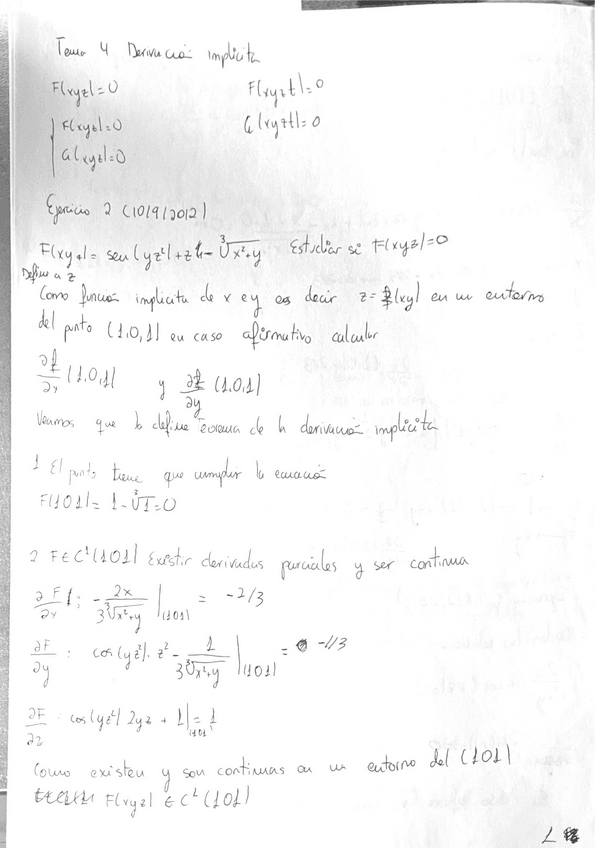 Tema 4 Derivación implícita
F(xyz)=0 F(xyzt)=0
F(xyz)=0 G(xyzt)=0
G(xyz)=0
Ejercicio 2 (10/9/2012)
F(xyz)= sen(yz²)+z - ∛x²+y Estudiar si F(xyz)=0
Define a z
Como función implícita de x e y es decir z=f(xy) en un entorno
del punto (1,0,1) en caso afirmativo calcular
∂f/∂x (1,0,1) y ∂f/∂y (1,0,1)
Veamos que lo define Teorema de la derivación implícita
1 El punto tiene que cumplir la ecuación
F(101)= 1-∛1=0
2 F∈C¹(101) Existir derivadas parciales y ser continua
∂F/∂x : -2x/3∛x²+y |(101) = -2/3
∂F/∂y : cos(yz²)·z² - 1/3∛x²+y |(101) = -1/3
∂F/∂z : cos(yz²) 2yz + 1|(101) = 1
Como existen y son continuas en un entorno del (101)
F(xyz) ∈ C¹(101)
1